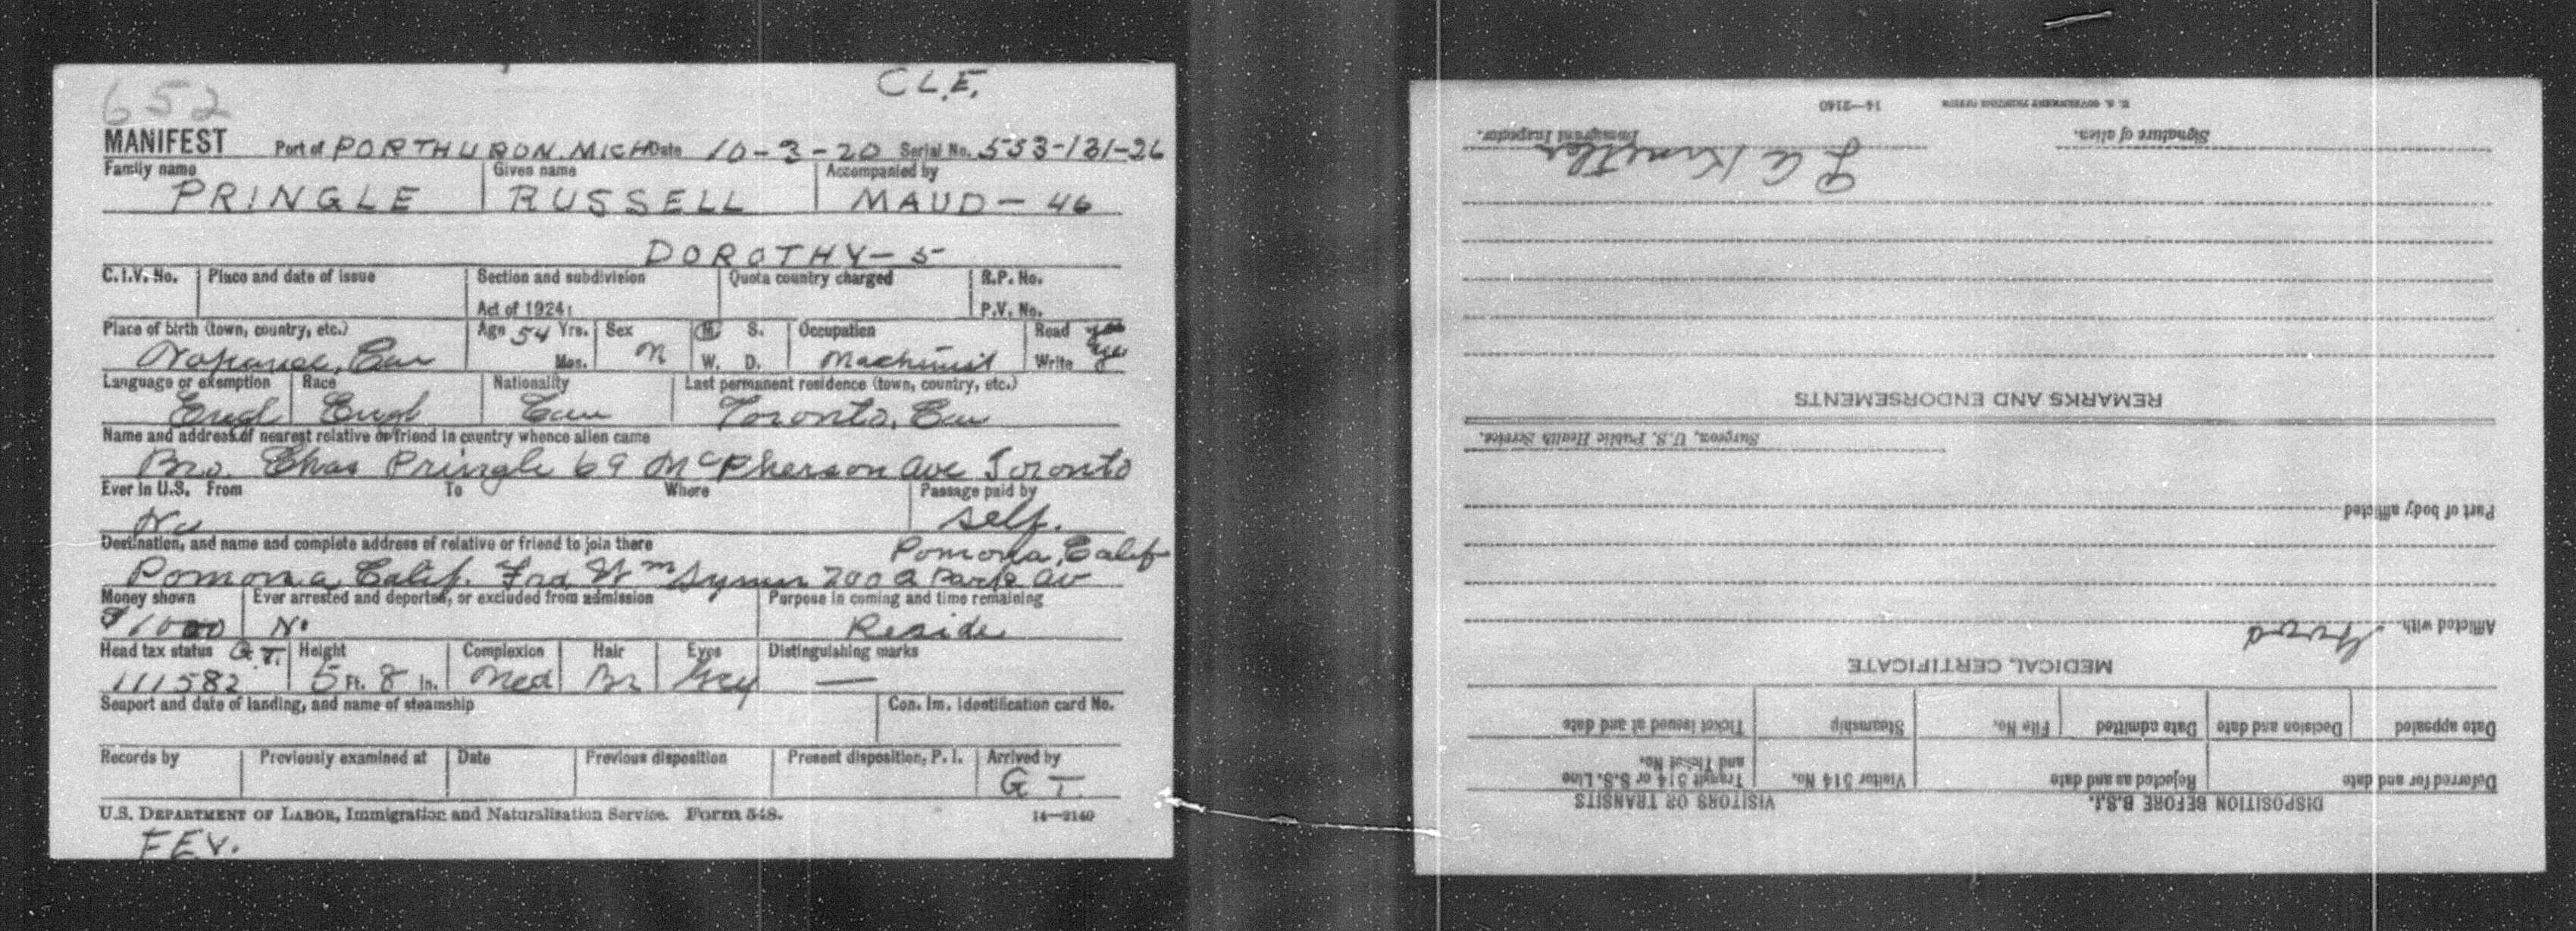 652
C.L.E.
MANIFEST Port of PORTHURON. MICH Date 10-3-20 Serial No. 553-131-26
Family name Given name Accompanied by
PRINGLE RUSSELL MAUD - 46
DOROTHY - 5
C.I.V. No. Place and date of issue Section and subdivision Quota country charged R.P. No.
Act of 1924: P.V. No.
Place of birth (town, country, etc.) Age 54 Yrs. Sex M. S. Occupation Read yes
Napanee, Can Mos. M W. D. Machinist Write yes
Language or exemption Race Nationality Last permanent residence (town, country, etc.)
Engl Engl Can Toronto, Can
Name and address of nearest relative or friend in country whence alien came
Bro. Chas Pringle 69 McPherson ave Toronto
Ever in U.S. From To Where Passage paid by
No self.
Destination, and name and complete address of relative or friend to join there
Pomona, Calif
Pomona, Calif. Frd Wm 200 a Park av
Money shown Ever arrested and deported, or excluded from admission Purpose in coming and time remaining
$1000 No Reside
Head tax status G.T. Height Complexion Hair Eyes Distinguishing marks
111582 5 Ft. 8 In. Med Br Grey —
Seaport and date of landing, and name of steamship Con. Im. Identification card No.
Records by Previously examined at Date Previous disposition Present disposition, P. I. Arrived by
G T.
U.S. DEPARTMENT OF LABOR, Immigration and Naturalization Service. Form 548. 14—2140
FEV.
DISPOSITION BEFORE B.S.I. VISITORS OR TRANSITS
Deferred for and date Rejected as and date Visitor 514 No. Transit 514 or S.S. Line and Ticket No.
Date appealed Decision and date Date admitted File No. Steamship Ticket issued at and date
MEDICAL CERTIFICATE
Afflicted with
Part of body afflicted
Surgeon, U.S. Public Health Service.
REMARKS AND ENDORSEMENTS
Signature of alien. Immigrant Inspector.
U. S. GOVERNMENT PRINTING OFFICE 14—2140